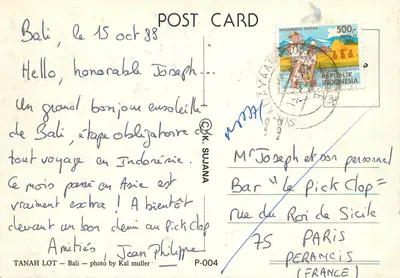 POST CARD
Bali, le 15 oct 88
Hello, honorable Joseph...
Un grand bonjour ensoleillé
de Bali, étape obligatoire de
tout voyage en Indonésie.
Ce mois passé en Asie est
vraiment extra ! A bientôt
devant un bon demi au Pick Clop
Amitiés, Jean Philippe
TANAH LOT – Bali – photo by Kal muller
P-004
© K. SUJANA
500,-
REPUBLIK
INDONESIA
Mr Joseph et son personnel
Bar "le Pick Clop"
rue du Roi de Sicile
75 PARIS
PERANCIS
(FRANCE)